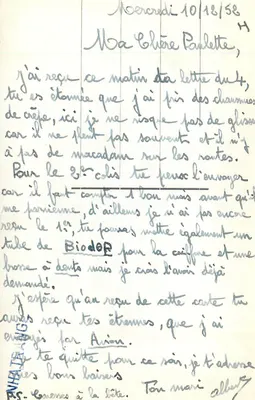 Mercredi 10/12/58
Ma Chère Paulette,
j'ai reçu ce matin ta lettre du 4,
tu es étonnée que j'ai pris des chaussures
de crêpe, ici je ne risque pas de glisser
car il ne pleut pas souvent et il n'y
a pas de macadam sur les routes.
Pour le 2e colis tu peux l'envoyer
car il faut compter 1 bon mois avant qu'il
me parvienne, d'ailleurs je n'ai pas encore
reçu le 1er, tu pourras mettre également un
tube de Biodop pour la coiffure et une
brosse à dents mais je crois l'avoir déjà
demandé.
J'espère qu'au reçu de cette carte tu
auras reçu tes étrennes, que j'ai
envoyés par Avion.
te quitte pour ce soir, je t'adresse
mes bons baisers
Ton mari Albert
P.S. Caresses à la bête.
NHATRANG